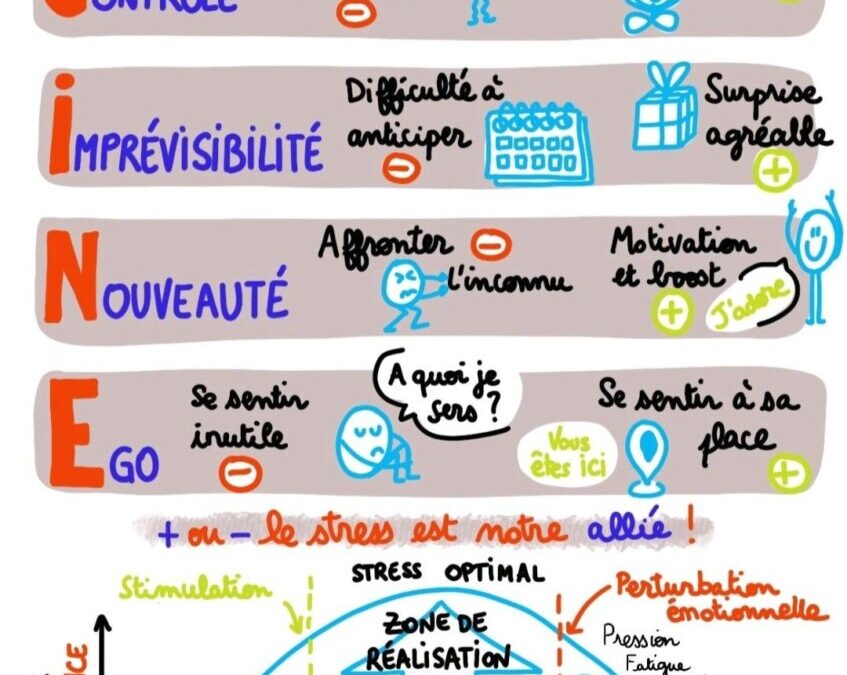 CONTRÔLE
IMPRÉVISIBILITÉ
Difficulté à
anticiper
Surprise
agréable
NOUVEAUTÉ
Affronter
l'inconnu
Motivation
et boost
J'adore
EGO
Se sentir
inutile
A quoi je
sers ?
Vous
êtes ici
Se sentir à sa
place
+ ou - le stress est notre allié !
Stimulation
STRESS OPTIMAL
ZONE DE
RÉALISATION
Perturbation
émotionnelle
Pression
Fatigue